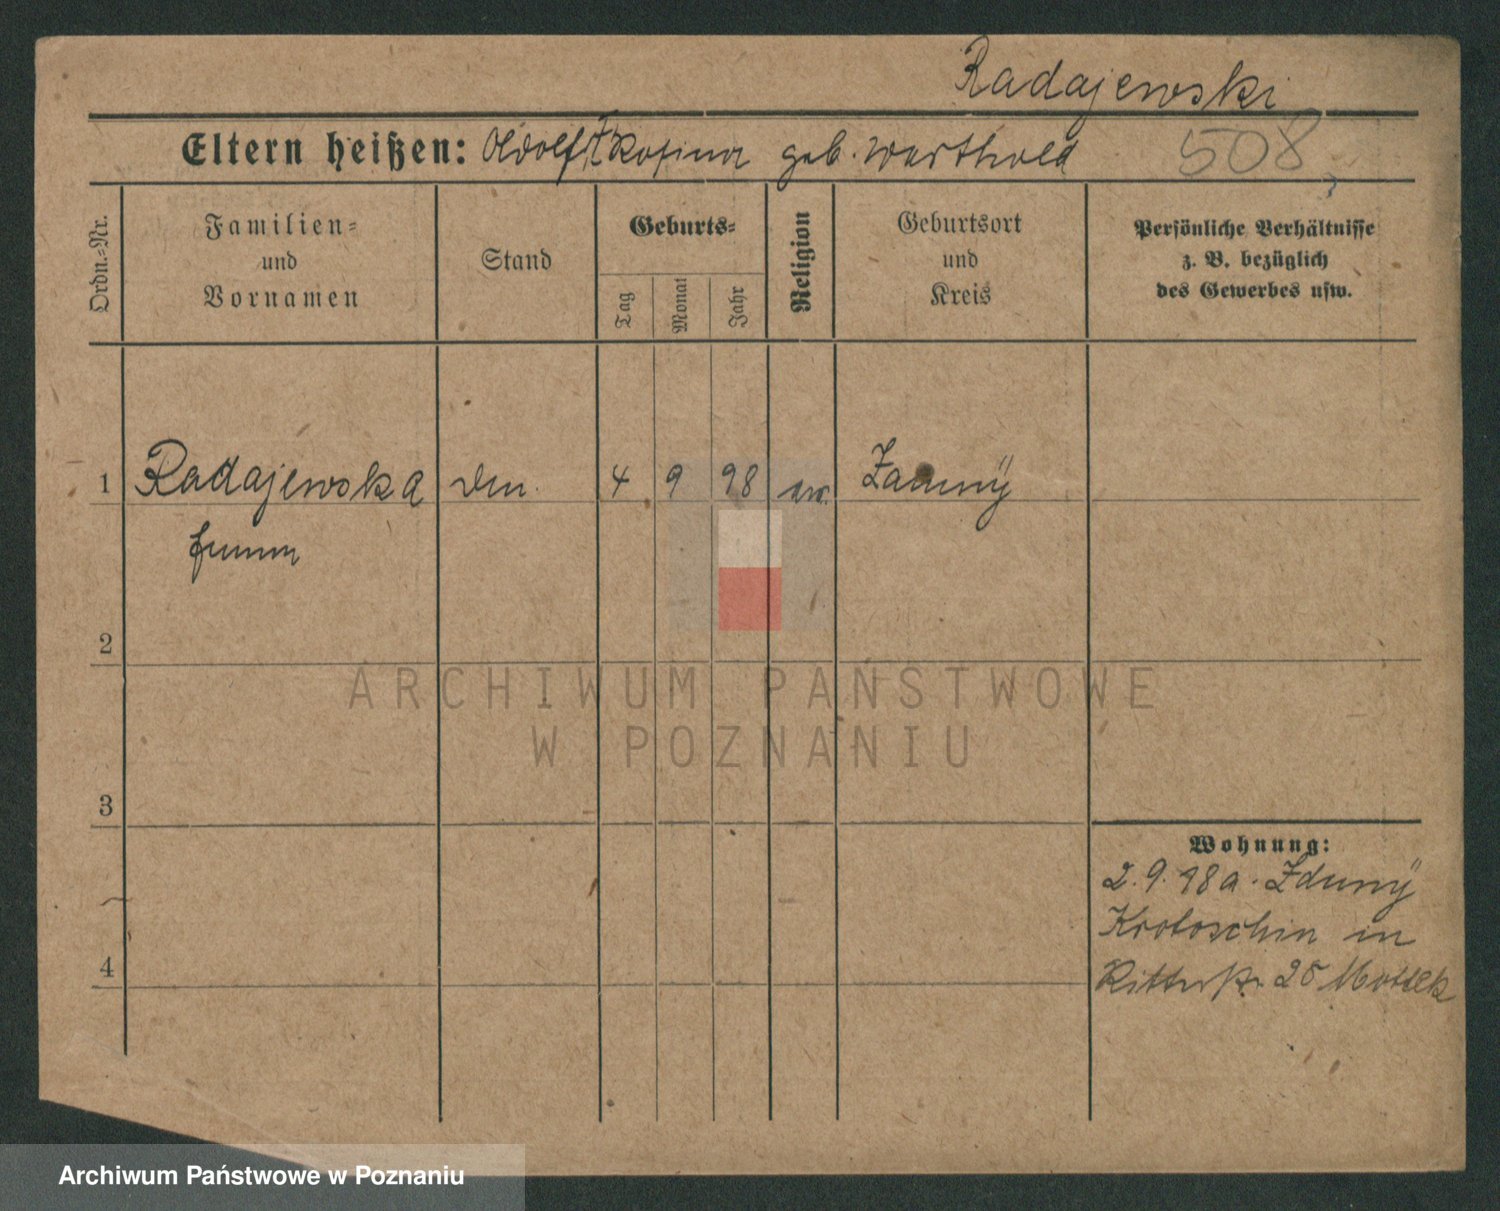 Radajewski
Eltern heißen: Adolf Rosina geb. Warthold
508
Ordn.-Nr.
Familien-
und
Vornamen
Stand
Geburts-
Tag
Monat
Jahr
Religion
Geburtsort
und
Kreis
Persönliche Verhältnisse
z. B. bezüglich
des Gewerbes usw.
1 Radajewska 4 9 98 Zduny
2
ARCHIWUM PAŃSTWOWE
W POZNANIU
3
Wohnung:
2.9.18 a. Zduny
Krotoschin in
4
Ritterstr 25 Mottek
Archiwum Państwowe w Poznaniu